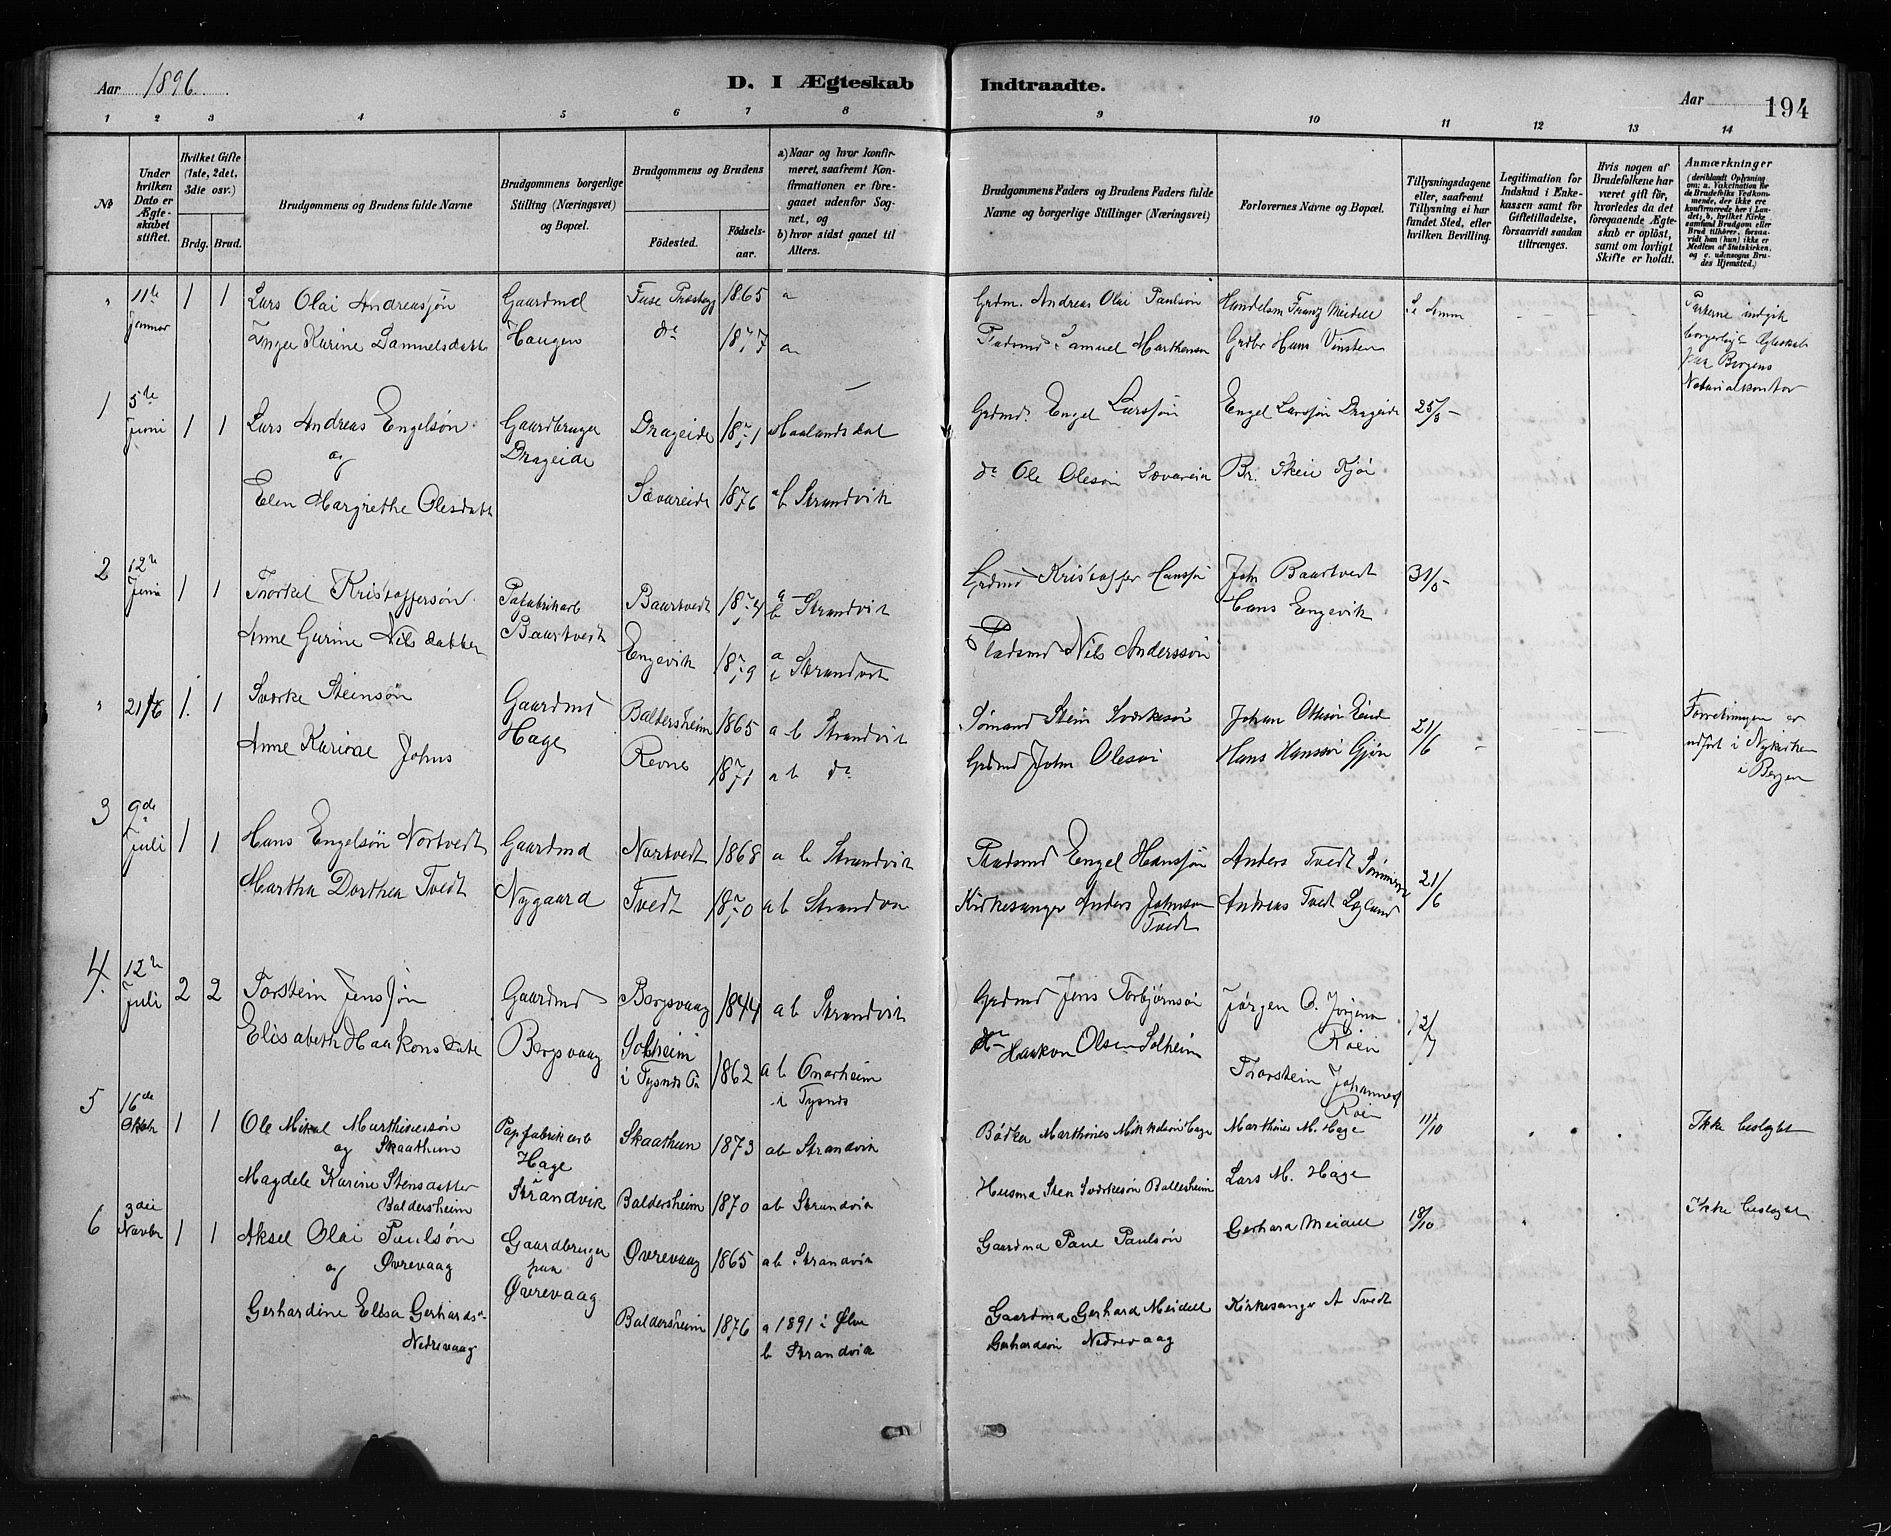 Aar 1896
D. I Ægteskab Indtraadte.
Aar 194
1 2 3 4 5 6 7 8 9 10 11 12 13 14
No
Under hvilken Dato er Ægteskabet stiftet.
Hvilket Gifte (1ste, 2det, 3die osv.)
Brdg. Brud.
Brudgommens og Brudens fulde Navne
Brudgommens borgerlige Stilling (Næringsvei) og Bopæl.
Brudgommens og Brudens
Födested.
Födsels-aar.
a) Naar og hvor konfirmeret, saafremt Konfirmationen er foregaaet udenfor Sognet, og
b) hvor sidst gaaet til Alters.
Brudgommens Faders og Brudens Faders fulde Navne og borgerlige Stillinger (Næringsvei)
Forlovernes Navne og Bopæl.
Tillysningsdagene eller, saafremt Tillysning ei har fundet Sted, efter hvilken Bevilling.
Legitimation for Indskud i Enkekassen samt for Giftetilladelse, forsaavidt saadan tiltrænges.
Hvis nogen af Brudefolkene har været gift för, hvorledes da det foregaaende Ægteskab er oplöst, samt om lovligt Skifte er holdt.
Anmærkninger
(deriblandt Oplysning om: a. Vakcination for de Brudefolks Vedkommende, der ikke ere konfirmerede her i Landet; b. hvilket Kirkesamfund Brudgom eller Brud tilhörer, forsaavidt han (hun) ikke er Medlem af Statskirken, og c. udensogns Brudes Hjemsted.)
" 11te Januar 1 1 Lars Olai Andreassøn Gaardmd Fuse Præstegj 1865 a Grdm. Andreas Olai Paulsøn Handelsm Franz Meidell
Inger Karine Samuelsdatt Haugen do 1877 a Pladsmd Samuel Marthensen Grdbr Hans Vinsten
Parterne indgik borgerligt Egteskab paa Bergens Notarialkontor
1 5te Juni 1 1 Lars Andreas Engelsøn Gaardbruger Drageide 1871 Haalandsdal Grdmd. Engel Larssøn Engel Larssøn Drageide 25/5
og Drageide
Elen Margrethe Olesdatt Sævareide 1876 ab Strandvik do Ole Olesøn Sævareid Br. Skeie
2 12te Juni 1 1 Torkel Kristoffersøn Papfabrikarb Baartvedt 1874 a b Strandvik Grdmd Kristoffer Hanssøn John Baartvedt 31/5
Baartvedt Hans Engevik
Anne Gurine Nilsdatter Engevik 1879 a Strandvik Pladsmd Nils Anderssøn
" 21/6 1 1 Sværke Steinsøn Gaardmd Baldersheim 1865 a b Strandvik Stein Sværkesøn Johan Ottesøn 21/6
Anne Karine Johns Hage Revne 1871 a b do Grdmd John Olesøn Hans Hanssøn Gjøn
Forretningen er udført i Nykirken i Bergen
3 9de Juli 1 1 Hans Engelsøn Nortvedt Gaardmd Nortvedt 1868 a b Strandvik Pladsmd Engel Hanssøn Anders Tvedt 21/6
Martha Dorthea Tvedt Nygaard Tvedt 1870 a b Strandvik Kirkesanger Anders Johnsen Tvedt Andreas Tvedt
4 12te Juli 2 2 Torstein Jenssøn Gaardmd Bergsvaag 1844 a b Strandvik Grdmd Jens Torbjørnsøn Jørgen O. Røen 12/7
Elisabeth Haakonsdatt Bergsvaag Solheim i Tysnes 1862 a b Onarheim i Tysnes do Haakon Olsen Solheim Thorstein Johannes Røen
5 16de Oktobr 1 1 Ole Mikal Marthinessøn Papfabrikarb Skaathun 1873 ab Strandvik Bødker Marthines Mikkelsøn Hage Marthines M. Hage 11/10 Ikke beslegtet
og Skaathun Hage
Magdele Karine Stensdatter Strandvik Baldersheim 1870 ab Strandvik Husmd Sten Sværkesøn Baldersheim Lars M. Hage
Baldersheim
6 3die Novbr 1 1 Aksel Olai Paulsøn Gaardbruger Øvrevaag 1865 ab Strandvik Gaardmd Paul Paulsøn Gerhard Meidell 18/10 Ikke beslegtet
og Øvrevaag paa Øvrevaag
Gerhardine Elisa Gerhardsd Baldersheim 1876 a 1891 i Ølve Gaardmd Gerhard Meidell Kirkesanger A Tvedt
Nedrevaag b Strandvik Gerhardsøn Nedrevaag